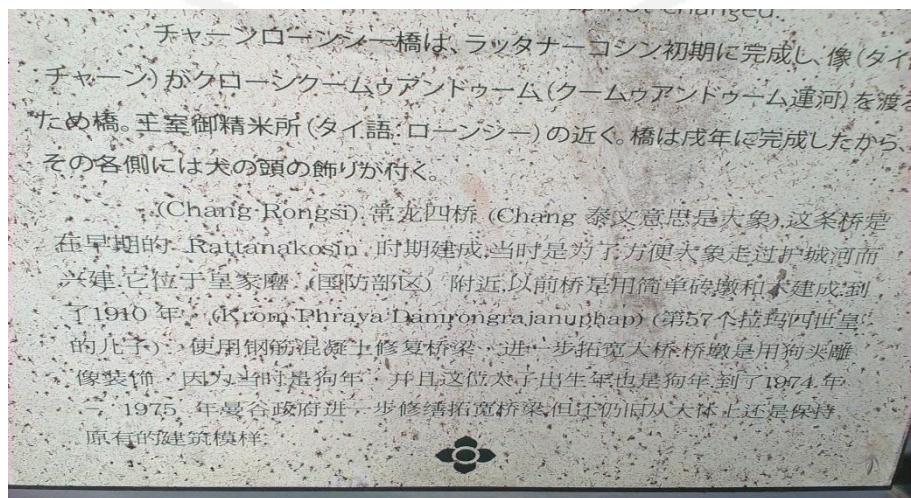 not changed.
チャーンローンシー橋は、ラッタナーコシン初期に完成し、像(タイ
チャーン)がクローンクームゥアンドゥーム(クームゥアンドゥーム運河)を渡る
ため橋。王室御精米所(タイ語:ローンシー)の近く。橋は戌年に完成したから、
その各側には犬の頭の飾りが付く。
(Chang Rongsi) 常龙四桥 (Chang 泰文意思是大象),这条桥是
在早期的 Rattanakosin 时期建成,当时是为了方便大象走过护城河而
兴建.它位于皇家磨 (国防部区) 附近,以前桥是用简单砖墩和木建成,到
了1910 年, (Krom Phraya Damrongrajanuphap) (第57个拉玛四世皇
的儿子) 使用钢筋混凝土修复桥梁,进一步拓宽大桥.桥墩是用狗头雕
像装饰,因为当时是狗年,并且这位太子出生年也是狗年.到了1974 年
- 1975 年曼谷政府进一步修缮拓宽桥梁,但还仍旧从大体上还是保持
原有的建筑模样.